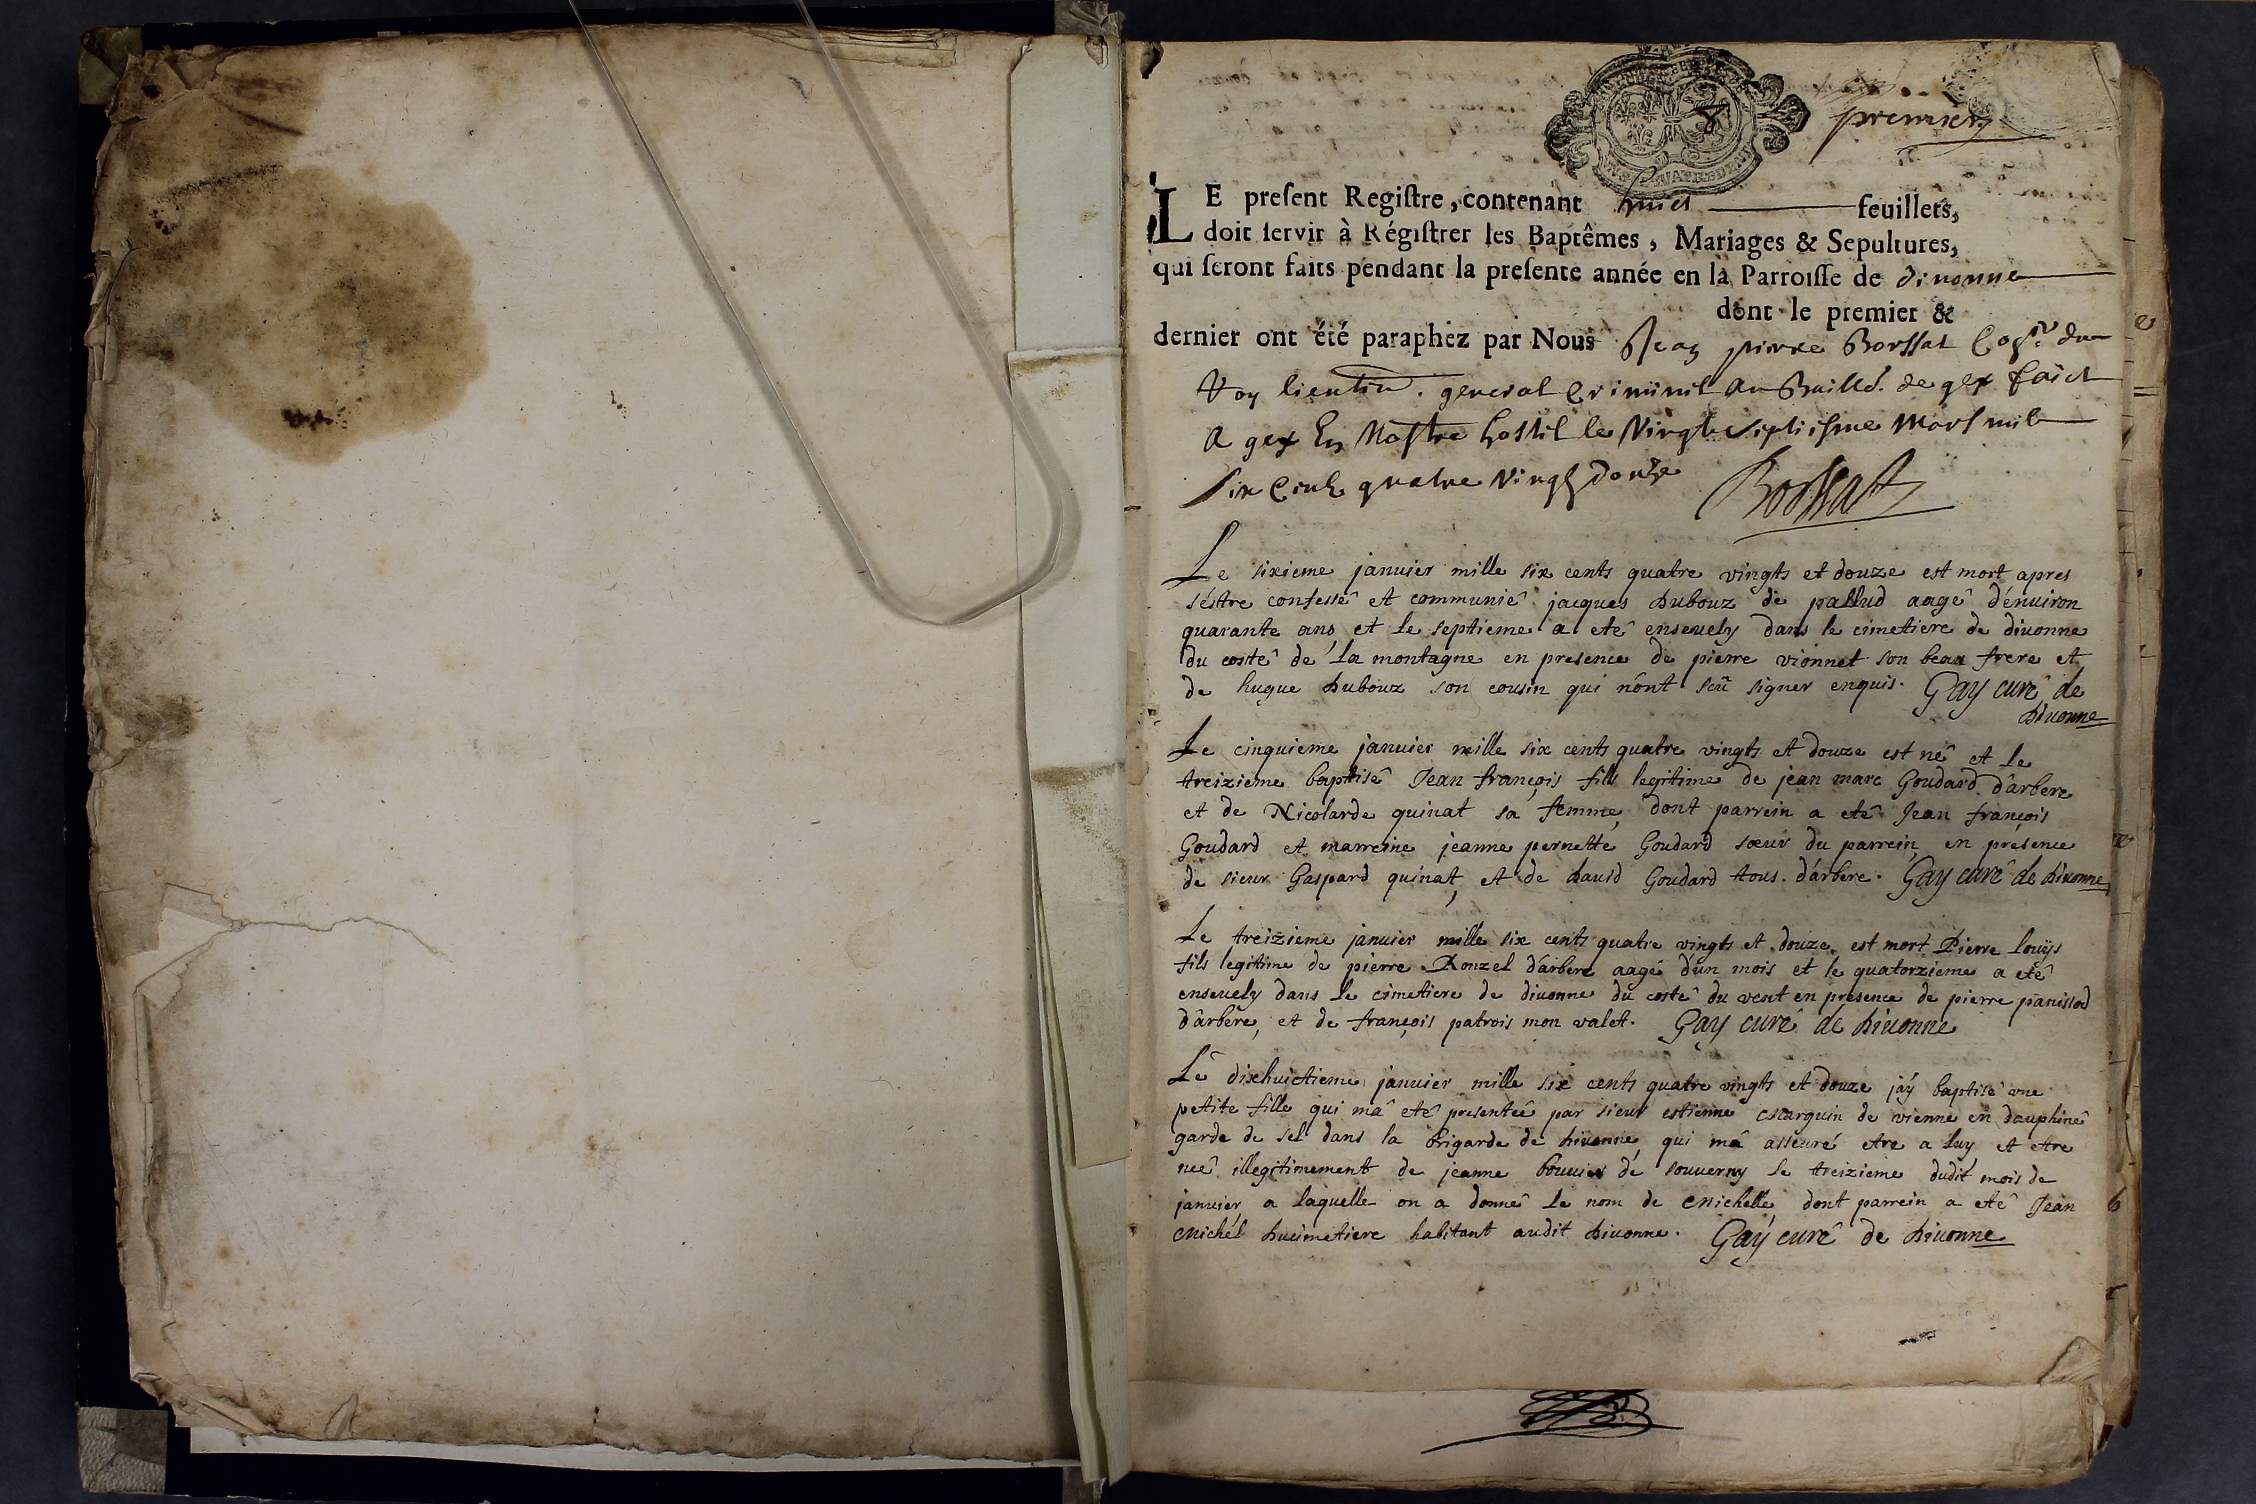 premier
LE present Registre, contenant huict feuillets,
doit servir à Régistrer les Baptêmes, Mariages & Sepultures,
qui seront faits pendant la presente année en la Parroisse de divonne
dont le premier &
dernier ont été paraphez par Nous Jean pierre Borssat du
Roy general Criminel au Bailld. de gex faict
A gex En Nostre hostel le Vingt septiesme Mars mil
Six Cent quatre Vingt Douze Borssat
Le sixieme januier mille six cents quatre vingts et douze est mort apres
s'éstre confessé et communié jacques dubouz de pallud aagé d'énuiron
quarante ans, et le septieme a eté enseuely dans le cimetiere de diuonne
du costé de la montagne en presence de pierre vionnet son beau frere et
de hugue dubouz son cousin qui n'ont sceu signer enquis. Gay curé de
diuonne
Le cinquieme januier mille six cents quatre vingts et douze est né et le
treizieme baptisé Jean françois fils legitime de jean marc Goudard d'arbere
et de Nicolarde quinat sa femme, dont parrein a eté Jean françois
Goudard et marreine jeanne pernette Goudard sœur du parrein, en presence
de sieur Gaspard quinat, et de dauid Goudard tous d'arbere. Gay curé de diuonne
Le treizieme januier mille six cents quatre vingts et douze est mort Pierre louijs
fils legitime de pierre Ronzel d'arbere aagé d'un mois et le quatorzieme a eté
enseuely dans le cimetiere de diuonne du costé du vent en presence de pierre panissod
d'arbere, et de françois patrois mon valet. Gay curé de diuonne
Le dixhuictieme januier mille six cents quatre vingts et douze j'aÿ baptisé une
petite fille qui m'a eté presentée par sieur estienne Marguin de vienne en dauphiné
garde de sel dans la brigarde de diuonne, qui m'a asseuré etre a luy et etre
neé illegitimement de jeanne bouuier de souuerny le treizieme dudit mois de
januier, a laquelle on a donné le nom de Michelle, dont parrein a eté Jean
Michel ducimetiere habitant audit diuonne. Gaÿ curé de diuonne